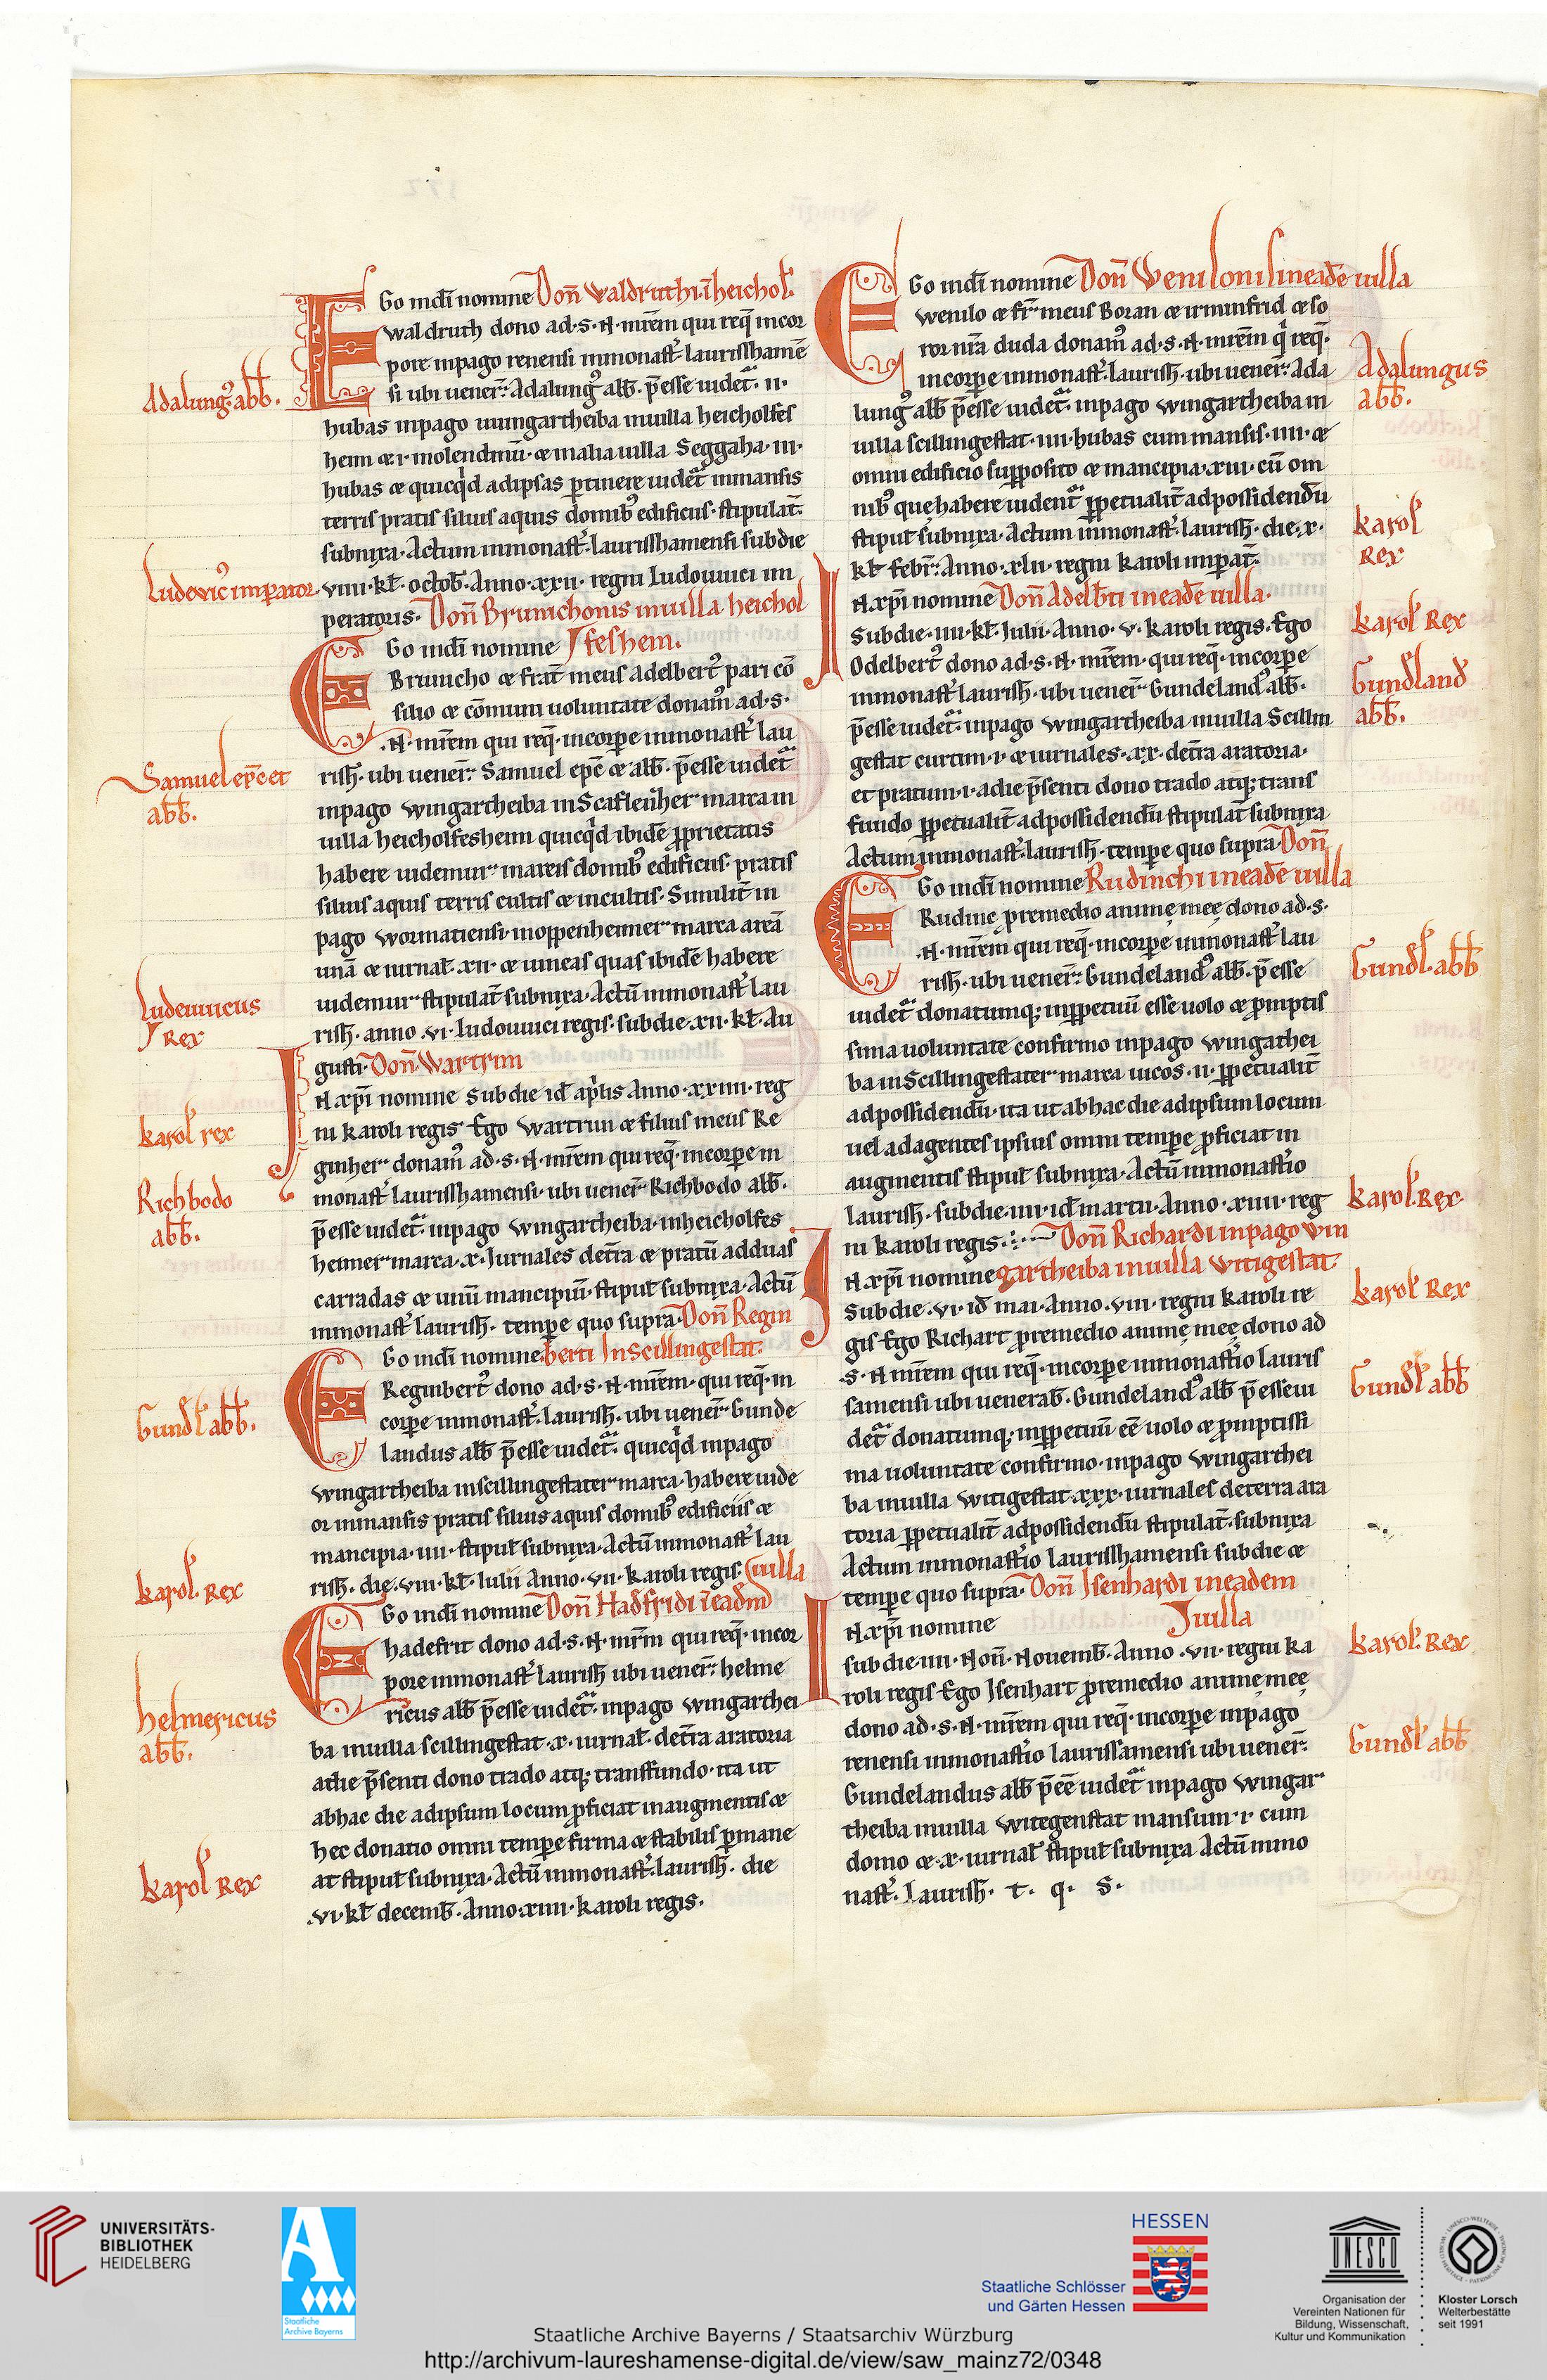 Ego in dei nomine Don̄ Waldruthi. in heichol.
Waldruth dono ad. S. N. mr̄em qui req̄ in cor
pore in pago renensi in monast̄. laurisshamē
si ubi uener̄. Adalung9 abb̄. p̄esse uidet᷑. ii.
Adalung9 abb̄.
hubas in pago uuingartheiba in uilla heicholfes
heim & .i. molendinū. & in alia uilla Seggaha. iii.
hubas & quicq̇d ad ipsas ptinere uidet᷑ in mansis
terris pratis siluis aquis domib9 edificiis. stipulat̄.
subnixa. Actum in monast̄. laurisshamensi sub die
viiii. kl̄. octob̄. Anno. xxii. regni Ludouuici im
Ludewic9 imperator.
peratoris. Don̄ Brunichonis in uilla heichol
Ego in dei nomine ſfeshem.
Brunicho & frat̄ meus Adelbert9 pari cō
silio & cōmuni uoluntate donam9 ad. S.
.N. mr̄em qui req̄. in corpe in monast̄ lau
rish̄. ubi uener̄. Samuel epc̄ & abb̄. p̄esse uidet᷑
Samuel epc̄ et
abb̄.
in pago Wingartheiba in Scaflenher marca in
uilla heicholfesheim quicq̇d ibidē pprietatis
habere uidemur in areis domib9 edificiis. pratis
siluis aquis terris cultis & incultis. Similit̄ in
pago Wormatiensi. in oppenheimer marca areā
unā & iurnal̄. xii. & uineas quas ibidē habere
uidemur stipulat̄ subnixa. Actū in monast̄ lau
rish̄. anno. vi. ludouuici regis. sub die. xii. kl̄. Au
Ludeuuicus
Rex
gusti. Don̄. Wartrun
IN xp̄i nomine Sub die id̄ ap̊lis Anno. xxiiii. reg
ni karoli regis Ego Wartrun & filius meus Re
karol̄ rex
ginher donam9 ad. S. N. mr̄em qui req̄. in corpe in
monast̄ laurisshamensi. ubi uener̄ Richbodo abb̄.
Richbodo
abb̄.
p̄esse uidet᷑. in pago Wingartheiba. in heicholfes
heimer marca. x. Iurnales det̄ra & pratū ad duas
carradas & unū mancipiū. stipul̄ subnixa. Actū
in monast̄ laurish̄. tempe quo supra. Don̄ Regin
Ego in dei nomine. berti In Scillingestat.
Reginbert9 dono ad. S. N. mr̄em. qui req̄. in
corpe in monast̄. laurish̄. ubi uener̄ Gunde
Gundl̄ abb̄.
landus abb̄ p̄esse uidet᷑. quicq̇d in pago
Wingartheiba in scillingestater marca. habere uide
or in mansis pratis siluis aquis domib9 edificiis &
mancipia. iiii. stipul̄ subnixa. Actū in monast̄ lau
rish̄. die. viii. kl̄. Iulii Anno. vii. karoli regis. uilla
karol̄. Rex
Ego in dei nomine Don̄ Hadfridi in eadm̄
hadefrit dono ad. S. N. mr̄m qui req̄. in cor
pore in monast̄ laurish̄ ubi uener̄. helme
ricus abb̄ p̄esse uidet᷑. in pago Wingarthei
helmericus
abb̄.
ba in uilla scillingestat. x. iurnal̄. det̄ra aratoria
a die p̄senti dono trado atq; transfundo. ita ut
ab hac die ad ipsum locum pficiat in augmentis &
hec donatio omni tempe firma & stabilis pmane
at stipul̄ subnixa. Actū in monast̄. laurish̄. die
karol̄ Rex
.vi. kl̄ decemb̄. Anno. xiiii. karoli regis.
Ego in dei nomine Don̄ Weniloni sineadē uilla
Wenilo & fr̄ meus Boran & irminfrid & so
ror nr̄a duda donam9 ad. S. N. mr̄em q̇ req̄.
in corpe in monast̄. laurish̄. ubi uener̄. Ada
Adalungus
abb̄.
lung9 abb̄ p̄esse uidet᷑. in pago Wingartheiba in
uilla scillingestat. iiii. hubas cum mansis. iiii. &
omni edificio supposito & mancipia. xiii. cū om
nib9 que habere uident᷑ ppetualit̄ ad possidendū
stipul̄ subnixa. Actum in monast̄. laurish̄. die. x.
karol̄
Rex
kl̄ febr̄. Anno. xlii. regni karoli imperat̄.
IN xp̄i nomine Don̄ Adelb̄ti in eadē uilla.
Sub die. iiii. kl̄. Iulii. Anno. v. karoli regis. Ego
karol̄ Rex
Odelbert9 dono ad. S. N. mr̄em. qui req̄. in corpe
in monast̄ laurish̄. ubi uener̄ Gundeland9 abb̄.
Gundland
abb̄.
p̄esse uidet᷑. in pago Wingartheiba in uilla Scillin
gestat curtim. i. & iurnales. xx. det̄ra aratoria.
et pratum. i. a die p̄senti dono trado atq; trans
fundo ppetualit̄ ad possidendū stipulat̄ subnixa
Actum in monast̄. laurish̄. tempe quo supra. Don̄
Ego in dei nomine Rudinchi in eadē uilla
Rudinc p remedio animę meę dono ad. S.
.N. mr̄em qui req̄. in corpe in monast̄ lau
rish̄. ubi uener̄. Gundeland9 abb̄. p̄esse
Gundl̄. abb̄
uidet᷑ donatumq; inppetuū esse uolo & pmptis
sima uoluntate confirmo in pago Wingarthei
ba in Scillingestater marca uicos. ii. ppetualit̄
ad possidendū. ita ut ab hac die ad ipsum locum
uel ad agentes ipsius omni tempe pficiat in
augmentis stipul̄ subnixa. Actū in monast̄io
laurish̄. sub die. iiii. id̄ martii. Anno. xiiii. reg
karol̄. Rex.
ni karoli regis. Don̄ Richardi in pago Win
IN xp̄i nomine gartheiba in uilla Witigestat
Sub die. vi. id̄ mai. Anno. viii. regni karoli re
karol̄ Rex
gis Ego Richart p remedio animę meę dono ad
.S. N mr̄em qui req̄. in corpe in monast̄io lauris
samensi ubi uenerab̄. Gundeland9 abb̄ p̄esse ui
Gundl̄ abb̄
det᷑ donatumq; inppetuū eē uolo & pmptissi
ma uoluntate confirmo. in pago Wingarthei
ba in uilla Witigestat. xxx. iurnales de terra ara
toria ppetualit̄ ad possidendū stipulat̄. subnixa
Actum in monast̄io laurisshamensi sub die &
tempe quo supra. Don̄ Isenhardi in eadem
IN xp̄i nomine uilla
sub die. iiii. Non̄. Nouemb̄. Anno. vii. regni ka
karol̄. Rex
roli regis Ego Isenhart p remedio animę meę
dono ad. S. N. mr̄em qui req̄. in corpe in pago
renensi in monast̄io laurissamensi ubi uener̄.
Gundl̄ abb̄
Gundelandus abb̄ p̄eē uidet᷑ in pago Wingar
theiba in uilla Witegenstat mansum. i. cum
domo & x. iurnal̄ stipul̄ subnixa Actū in mo
nast̄. Laurish̄. t. q. s.
UNIVERSITÄTS-
BIBLIOTHEK
HEIDELBERG
Staatliche
Archive Bayerns
HESSEN
Staatliche Schlösser
und Gärten Hessen
UNESCO
Organisation der
Vereinten Nationen für
Bildung, Wissenschaft,
Kultur und Kommunikation
Kloster Lorsch
Welterbestätte
seit 1991
Staatliche Archive Bayerns / Staatsarchiv Würzburg
http://archivum-laureshamense-digital.de/view/saw_mainz72/0348